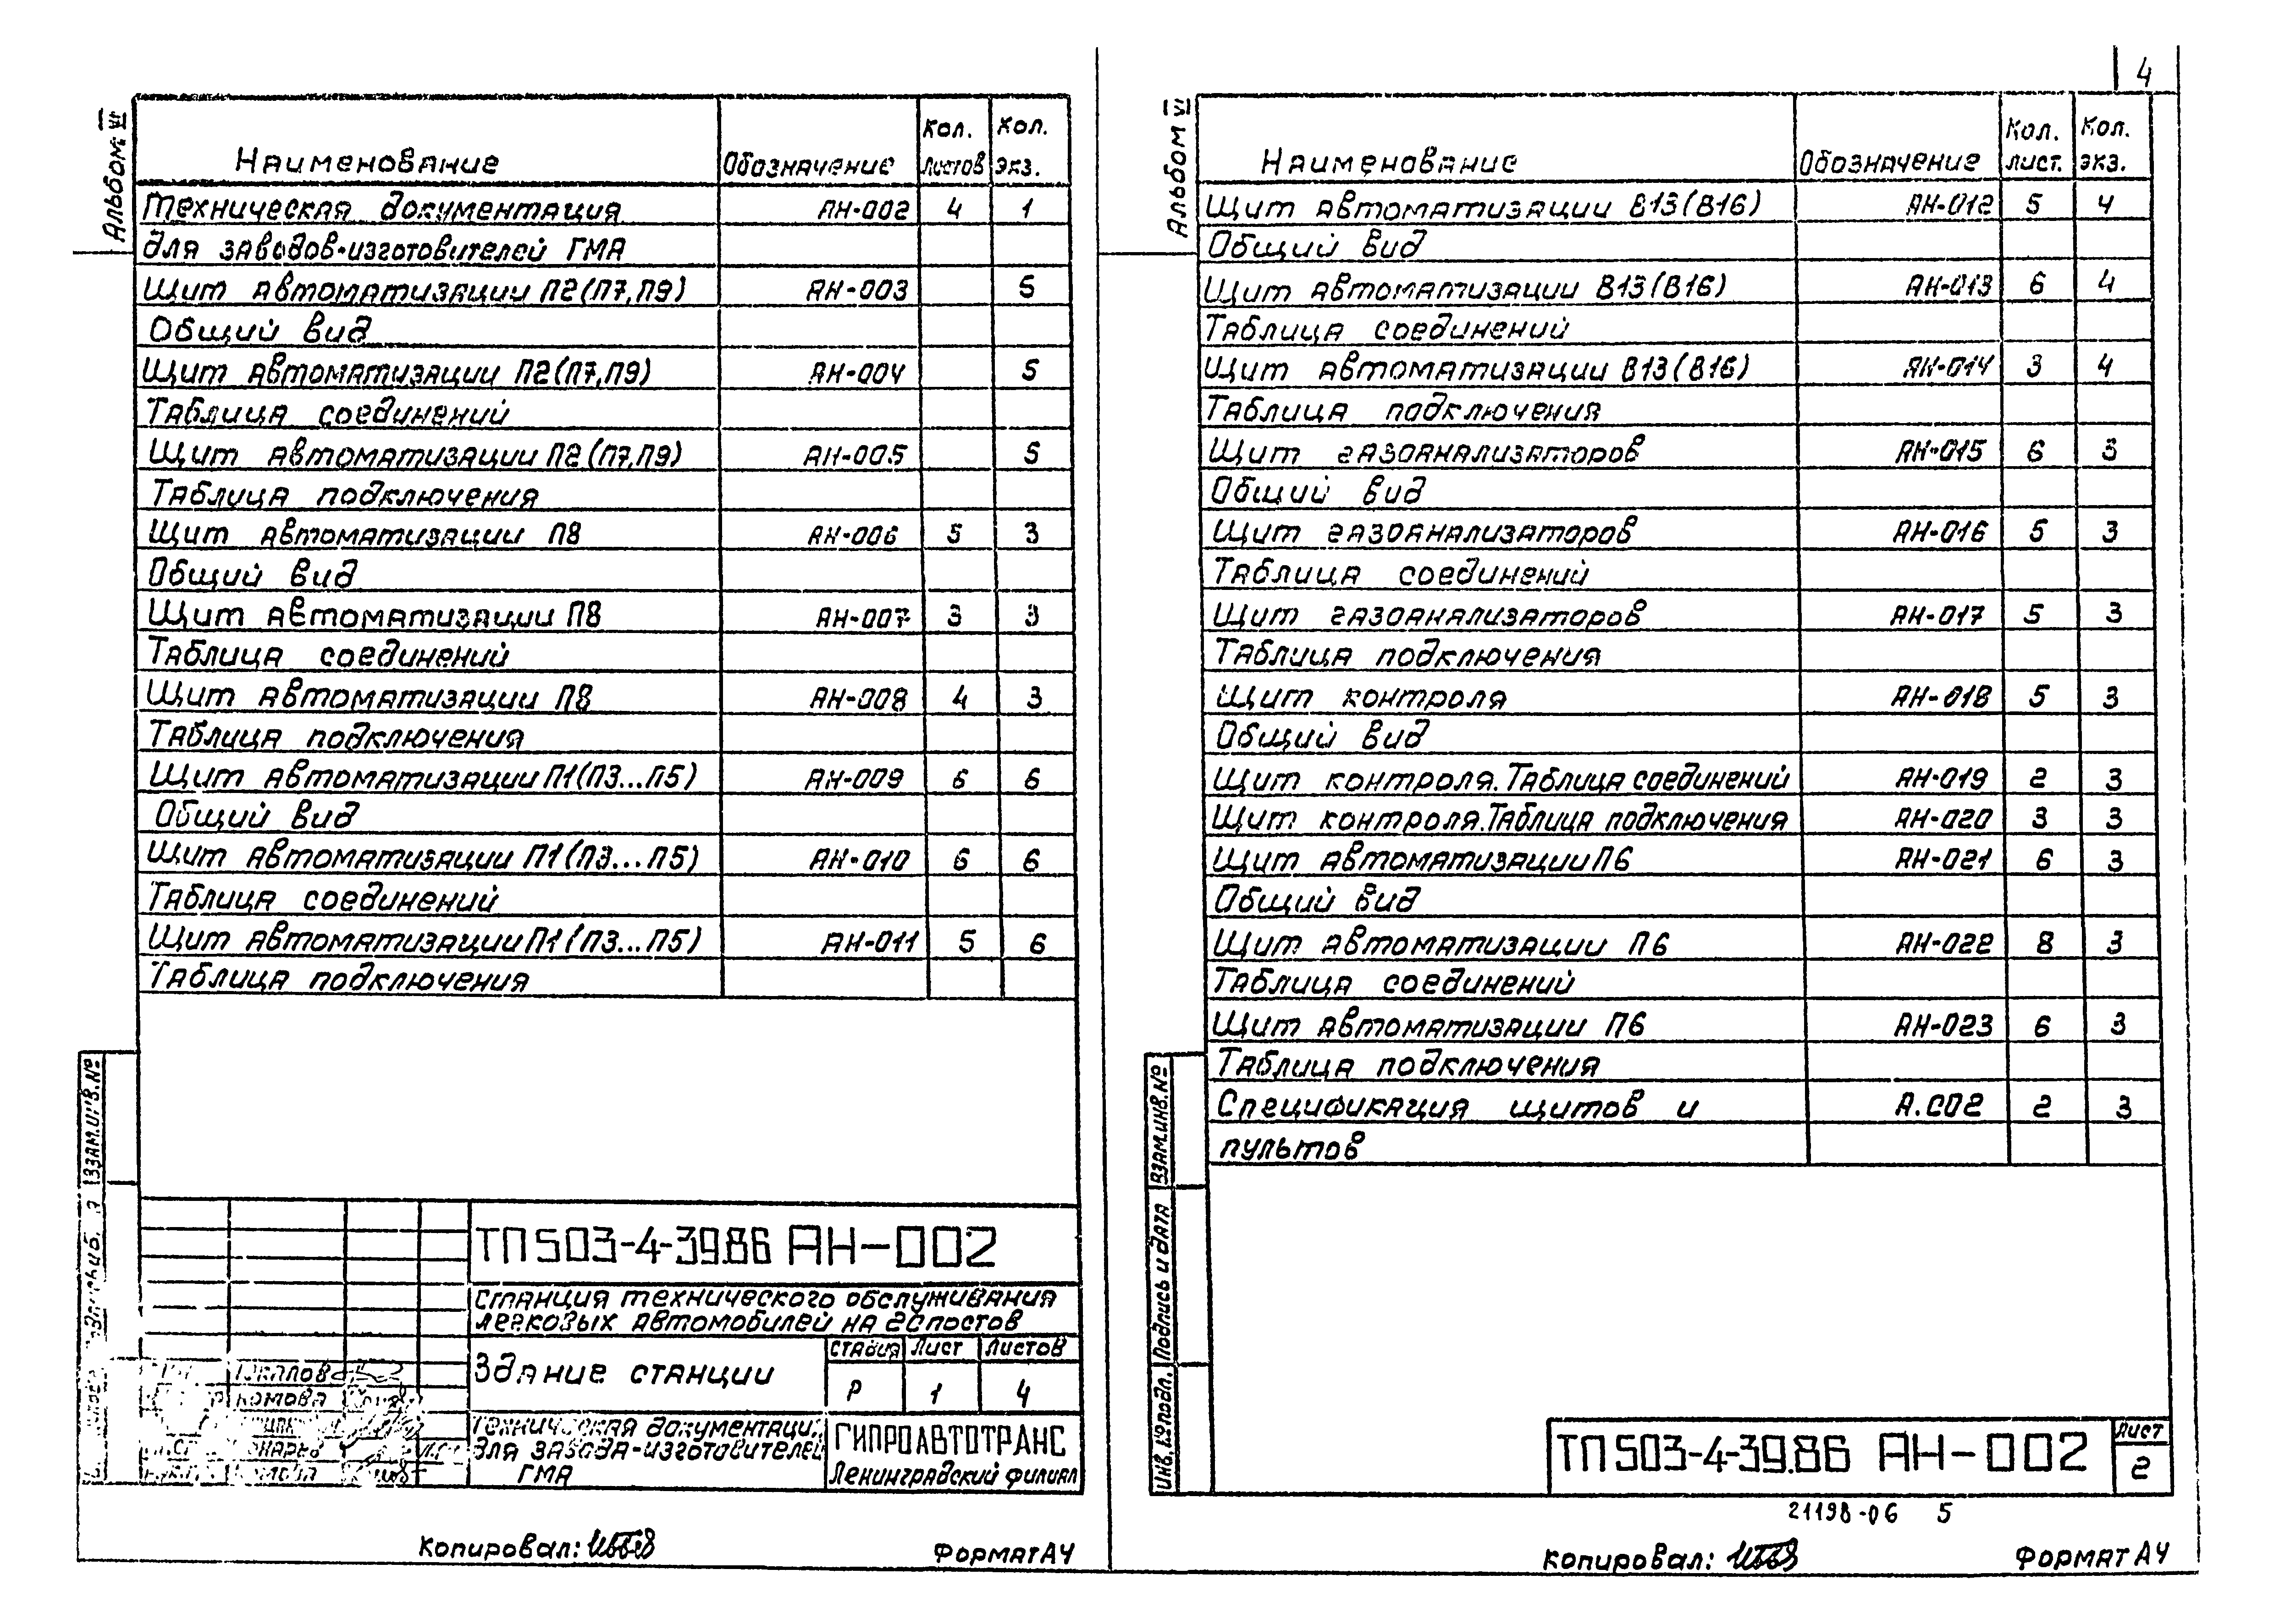 Альбом VI
Наименование Обозначение Кол. листов Кол. экз.
Техническая документация АН-002 4 1
для заводов-изготовителей ГМА
Щит автоматизации П2(П7,П9) АН-003 5
Общий вид
Щит автоматизации П2(П7,П9) АН-004 5
Таблица соединений
Щит автоматизации П2(П7,П9) АН-005 5
Таблица подключения
Щит автоматизации П8 АН-006 5 3
Общий вид
Щит автоматизации П8 АН-007 3 3
Таблица соединений
Щит автоматизации П8 АН-008 4 3
Таблица подключения
Щит автоматизации П1(П3...П5) АН-009 6 6
Общий вид
Щит автоматизации П1(П3...П5) АН-010 6 6
Таблица соединений
Щит автоматизации П1(П3...П5) АН-011 5 6
Таблица подключения
Взам.инв.№
ТП 503-4-39.86 АН-002
Станция технического обслуживания
легковых автомобилей на постов
Здание станции
Стадия Лист Листов
Р 1 4
Техническая документация
для завода-изготовителей
ГМА
ГИПРОАВТОТРАНС
Ленинградский филиал
Копировал:
Формат А4
4
Альбом VI
Наименование Обозначение Кол. лист. Кол. экз.
Щит автоматизации В13(В16) АН-012 5 4
Общий вид
Щит автоматизации В13(В16) АН-013 6 4
Таблица соединений
Щит автоматизации В13(В16) АН-014 3 4
Таблица подключения
Щит газоанализаторов АН-015 6 3
Общий вид
Щит газоанализаторов АН-016 5 3
Таблица соединений
Щит газоанализаторов АН-017 5 3
Таблица подключения
Щит контроля АН-018 5 3
Общий вид
Щит контроля. Таблица соединений АН-019 2 3
Щит контроля. Таблица подключения АН-020 3 3
Щит автоматизации П6 АН-021 6 3
Общий вид
Щит автоматизации П6 АН-022 8 3
Таблица соединений
Щит автоматизации П6 АН-023 6 3
Таблица подключения
Спецификация щитов и А.СО2 2 3
пультов
Взам.инв.№
Подпись и дата
Инв.№подл.
ТП 503-4-39.86 АН-002
Лист
2
21198-06 5
Копировал:
Формат А4